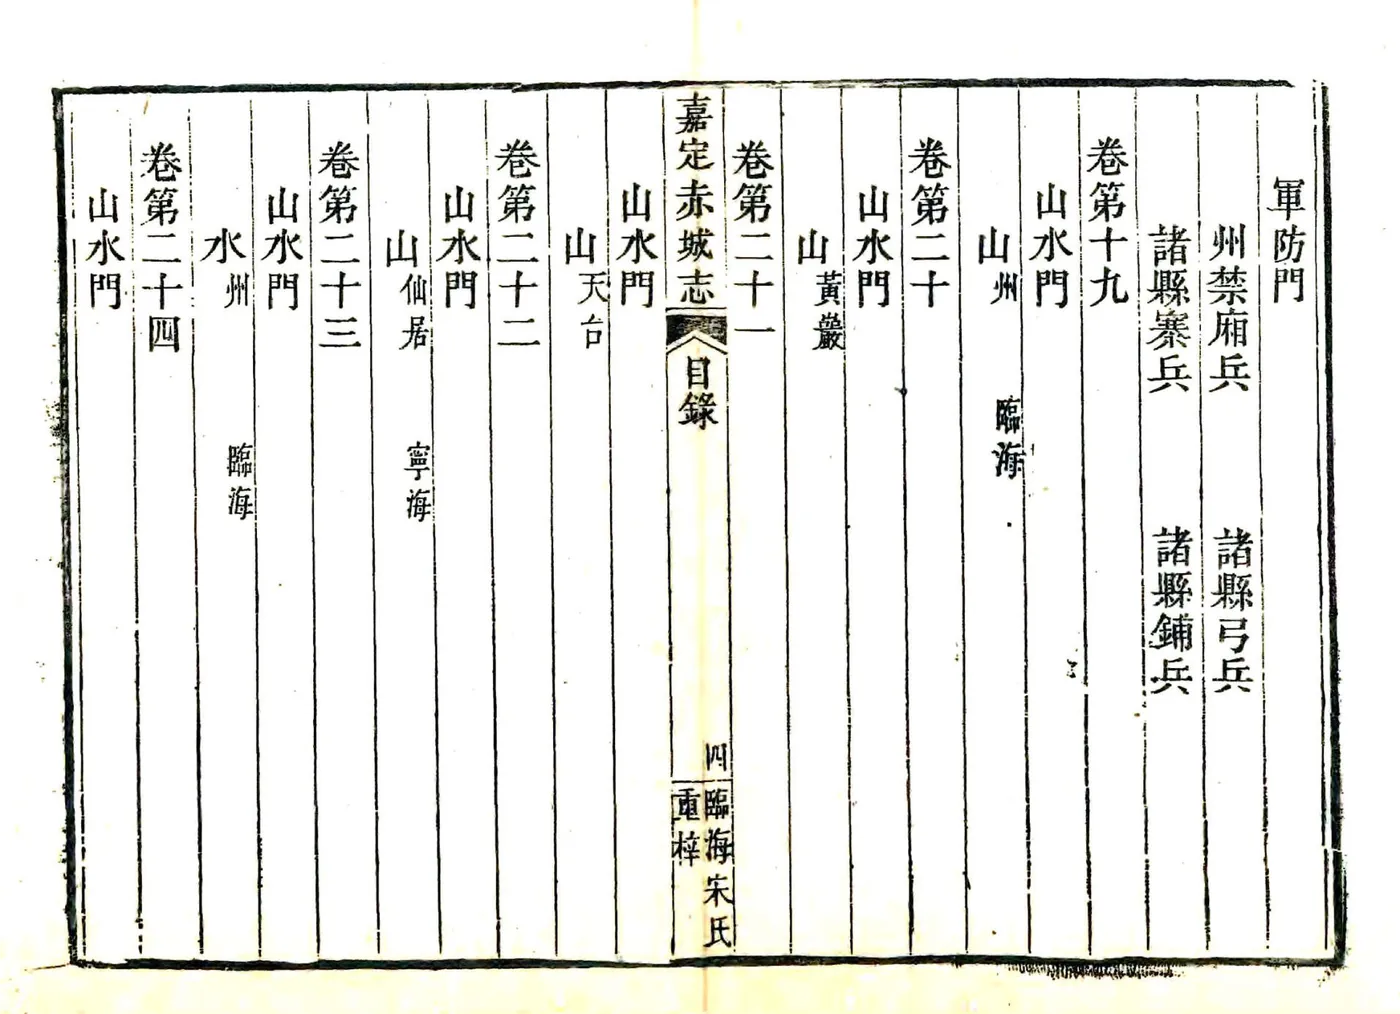 軍防門
州禁廂兵 諸縣弓兵
諸縣寨兵 諸縣鋪兵
卷第十九
山水門
山州 臨海
卷第二十
山水門
山黃巖
卷第二十一
嘉定赤城志 目錄 四 臨海宋氏
重梓
山水門
山天台
卷第二十二
山水門
山仙居 寧海
卷第二十三
山水門
水州 臨海
卷第二十四
山水門